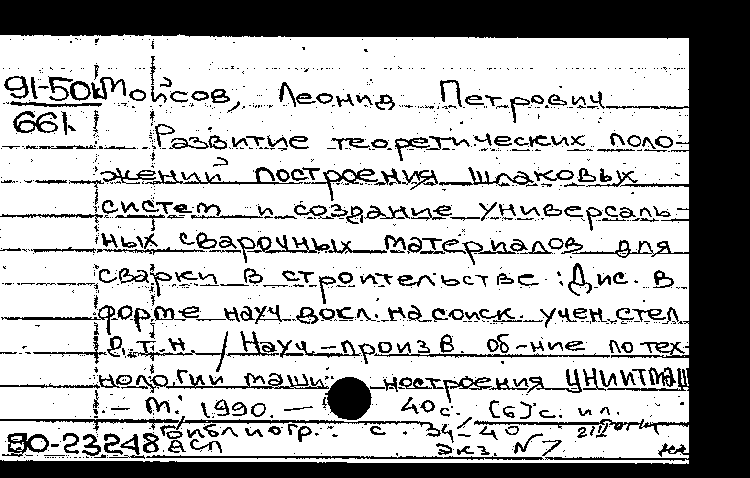 91-50к Мойсов, Леонид Петрович
661.
Развитие теоретических поло-
жений построения шлаковых
систем и создание универсаль-
ных сварочных материалов для
сварки в строительстве : Дис. в
форме науч докл. на соиск. учен. степ
д.т.н. / Науч.-произв об-ние по тех-
нологии машиностроения ЦНИИТМАШ
. - М., 1990. - 40 с. [6] с. ил.
Библиогр.: с. 34-40
90-23248 дсп Экз. N